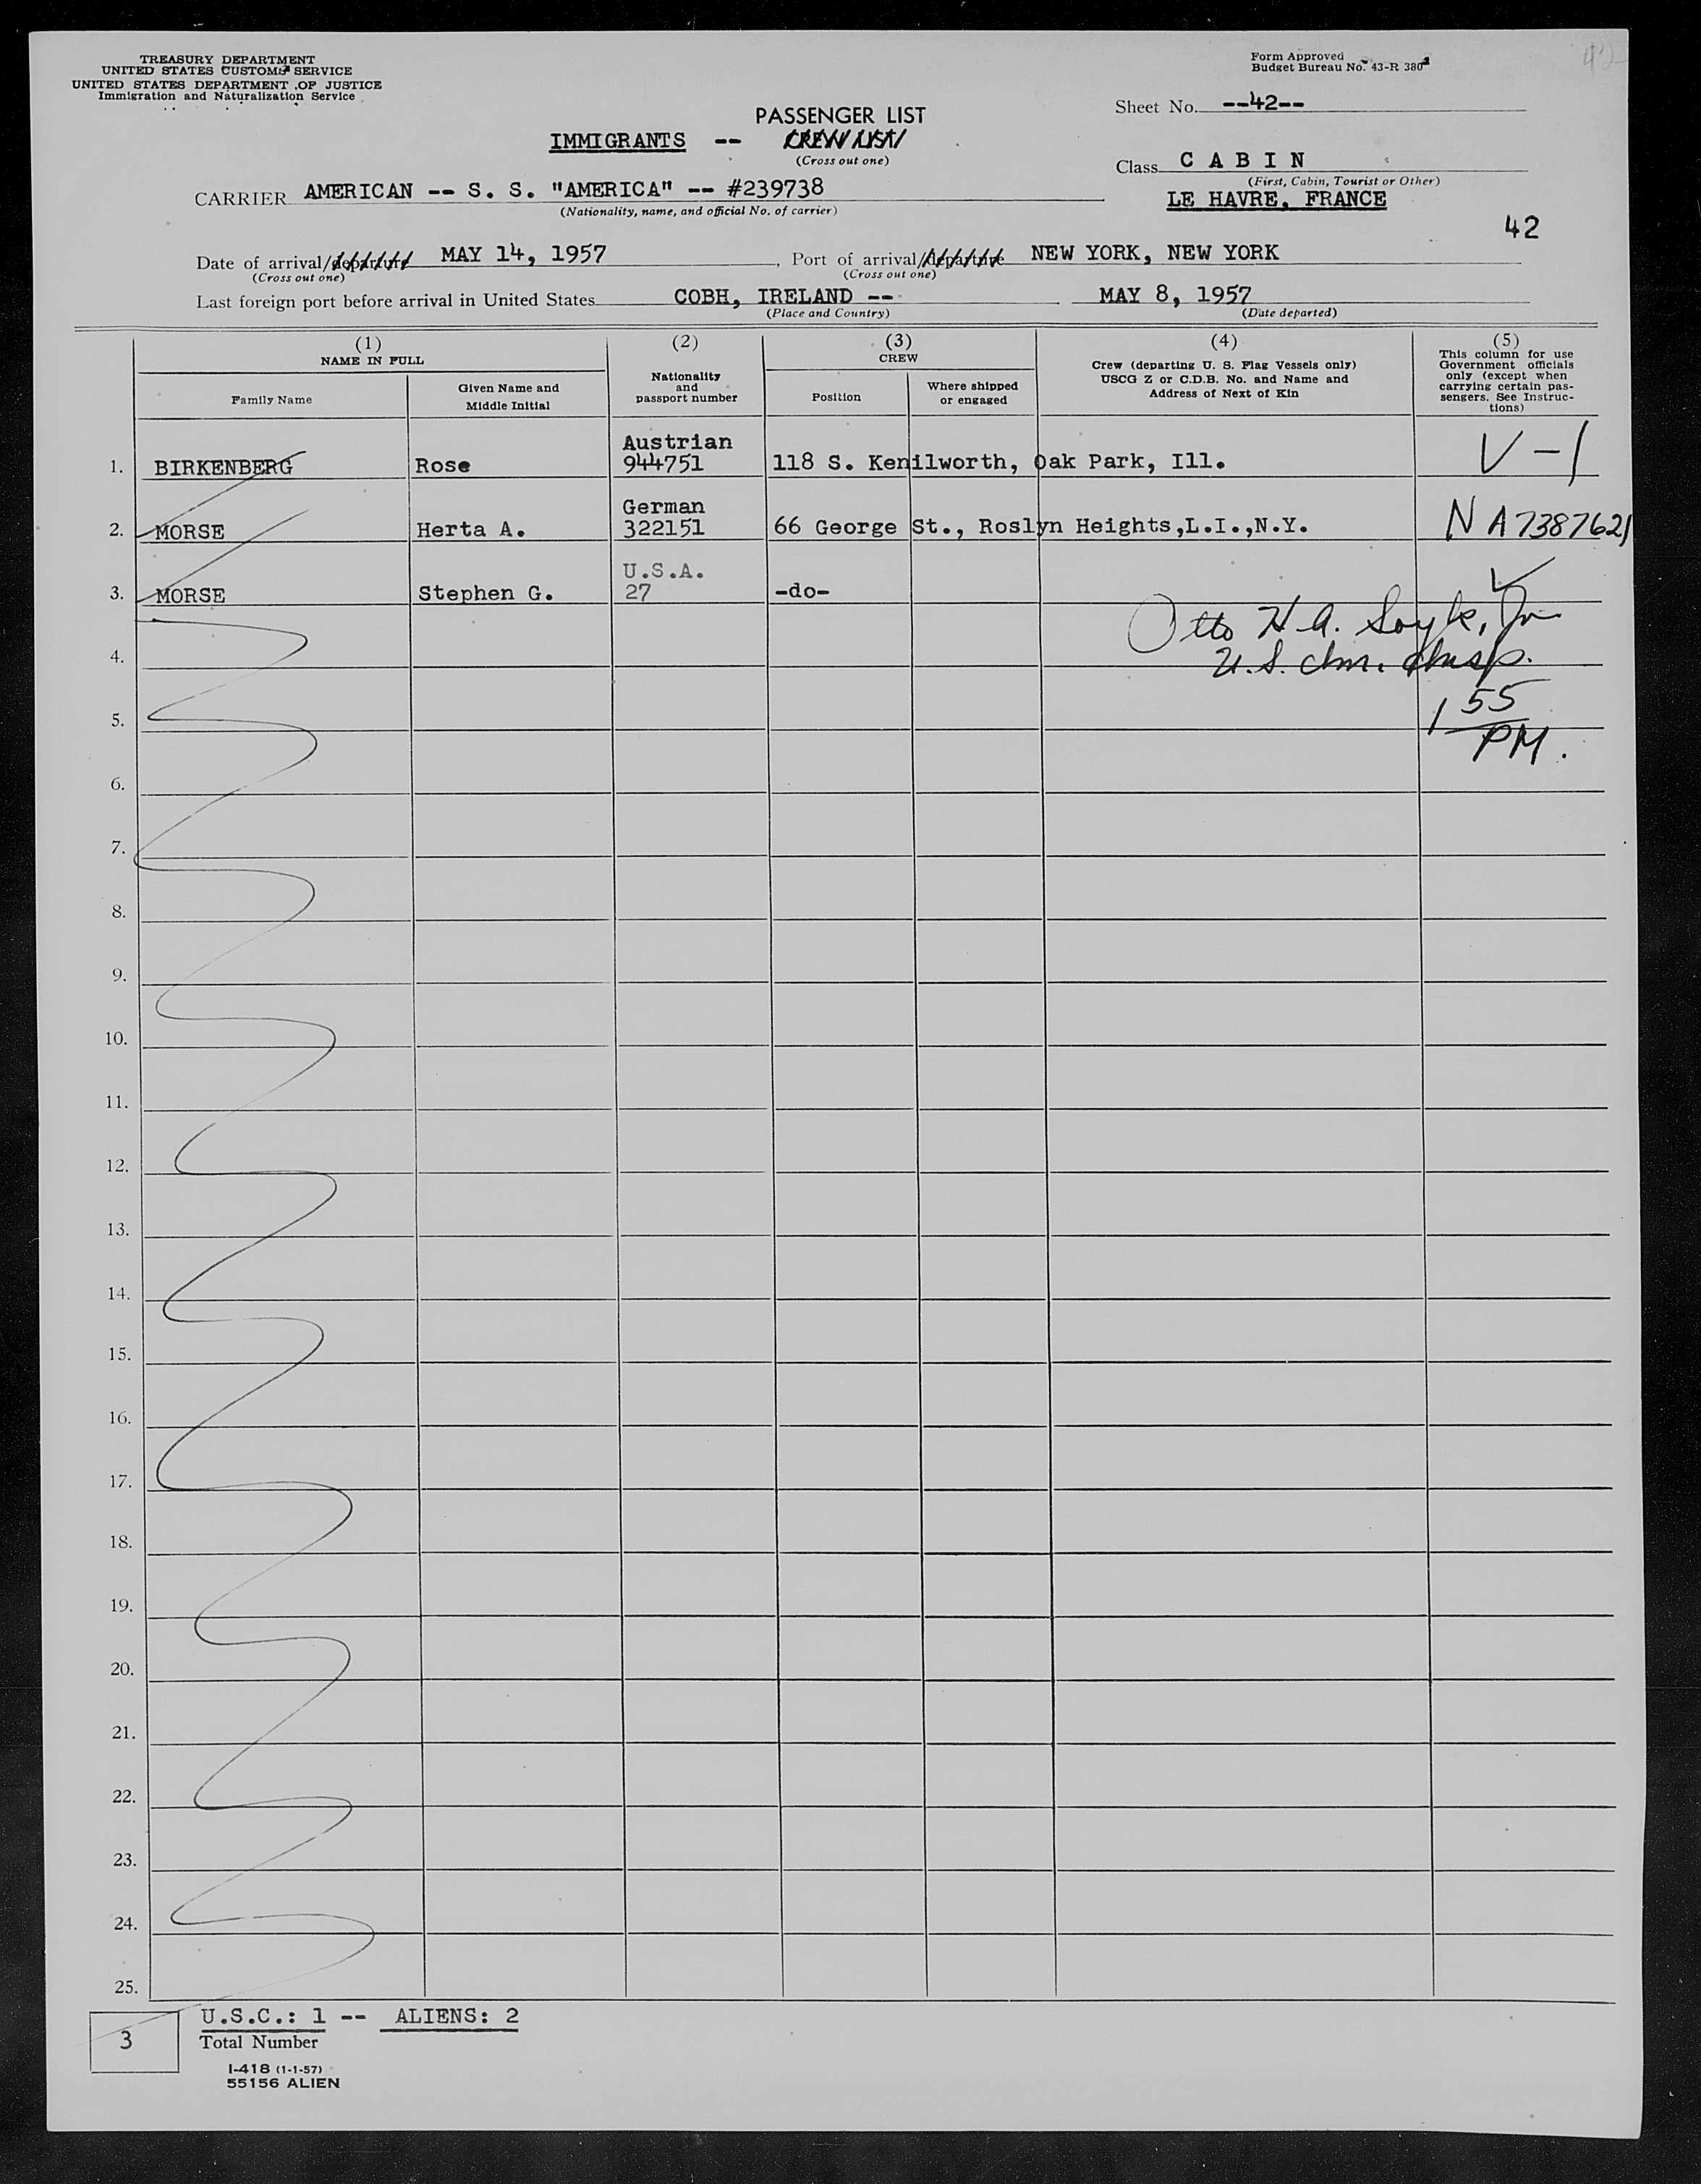 TREASURY DEPARTMENT
UNITED STATES CUSTOMS SERVICE
UNITED STATES DEPARTMENT OF JUSTICE
Immigration and Naturalization Service
Form Approved
Budget Bureau No. 43-R 380
42
Sheet No. --42--
PASSENGER LIST
IMMIGRANTS -- CREW LIST
(Cross out one)
Class C A B I N
(First, Cabin, Tourist or Other)
CARRIER AMERICAN -- S. S. "AMERICA" -- #239738
(Nationality, name, and official No. of carrier)
LE HAVRE, FRANCE
42
Date of arrival/departure MAY 14, 1957, Port of arrival/departure NEW YORK, NEW YORK
(Cross out one) (Cross out one)
Last foreign port before arrival in United States COBH, IRELAND -- MAY 8, 1957
(Place and Country) (Date departed)
(1) NAME IN FULL
Family Name
Given Name and Middle Initial
(2)
Nationality and passport number
(3) CREW
Position
Where shipped or engaged
(4)
Crew (departing U. S. Flag Vessels only)
USCG Z or C.D.B. No. and Name and
Address of Next of Kin
(5)
This column for use
Government officials
only (except when
carrying certain pas-
sengers. See Instruc-
tions)
1. BIRKENBERG Rose Austrian 944751 118 S. Kenilworth, Oak Park, Ill. V-1
2. MORSE Herta A. German 322151 66 George St., Roslyn Heights,L.I.,N.Y. N A7387621
3. MORSE Stephen G. U.S.A. 27 -do-
Otto H A.
U.S.
4.
1 55
5.
PM.
6.
7.
8.
9.
10.
11.
12.
13.
14.
15.
16.
17.
18.
19.
20.
21.
22.
23.
24.
25.
3
U.S.C.: 1 -- ALIENS: 2
Total Number
I-418 (1-1-57)
55156 ALIEN